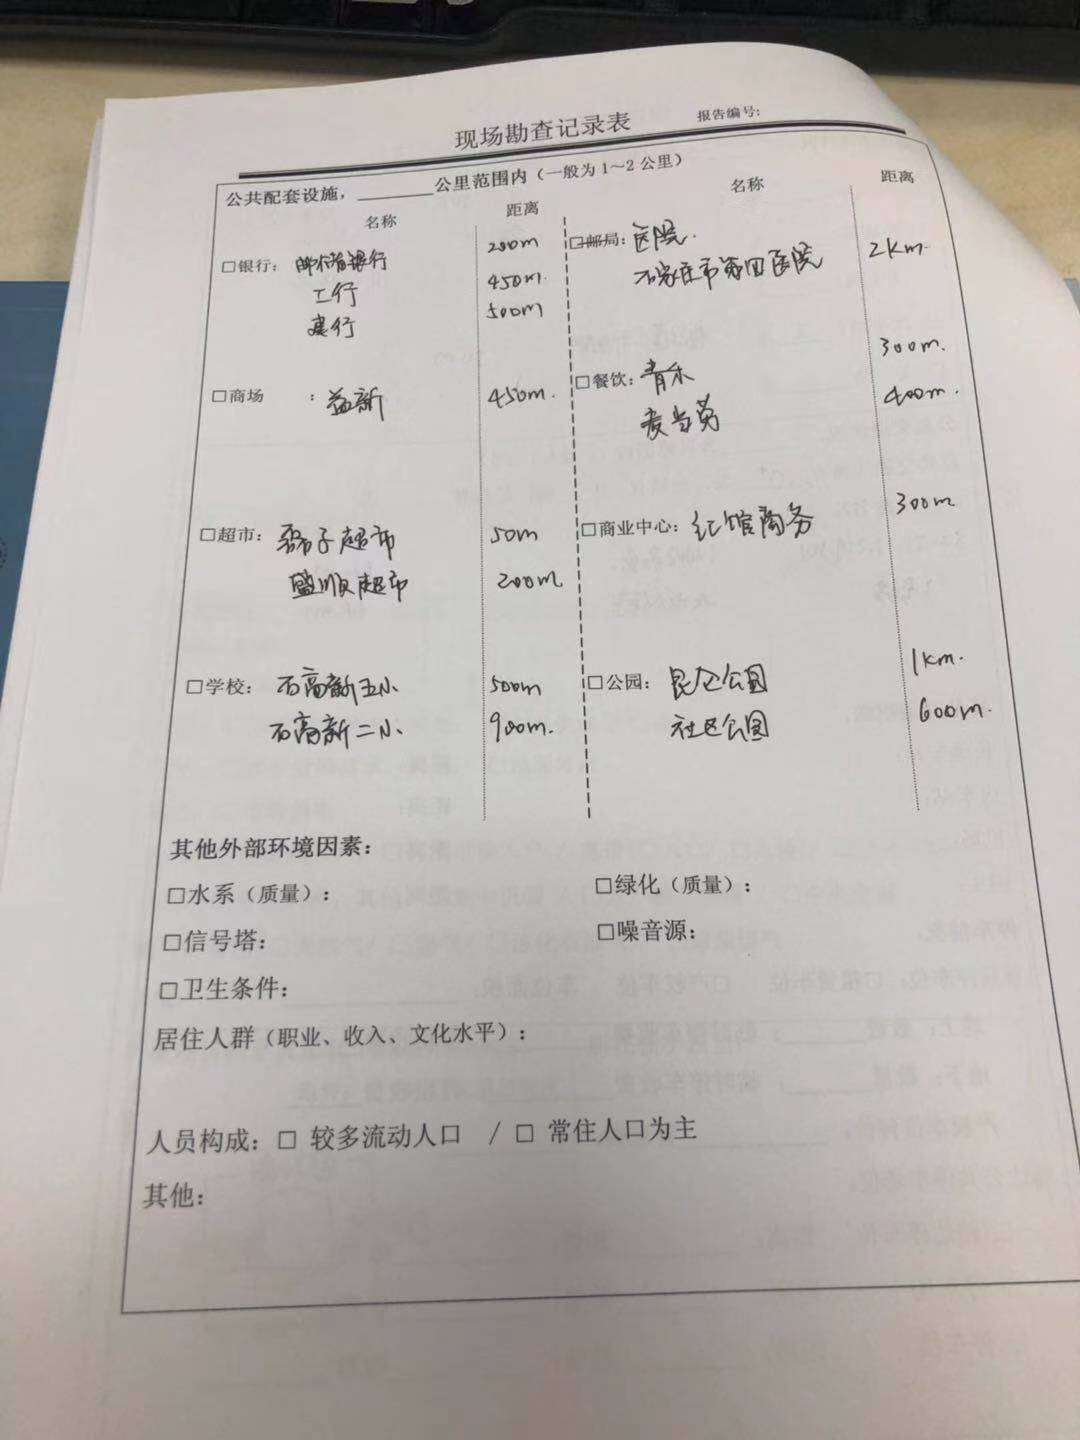 现场勘查记录表
报告编号:
公共配套设施，______公里范围内（一般为1～2公里）
名称 距离 名称 距离
□银行： 邮储银行 200m
工行 450m.
建行 500m
□邮局: 医院.
石家庄市第四医院 2km.
□商场 : 益新 450m.
□餐饮: 青禾 300m.
麦当劳 400m.
□超市: 子超市 50m
盛顺超市 200m
□商业中心: 汇馆商务 300m
□学校: 石高新五小 500m
石高新二小 900m.
□公园: 昆仑公园 1km.
社区公园 600m.
其他外部环境因素:
□水系（质量）: □绿化（质量）:
□信号塔: □噪音源:
□卫生条件:
居住人群（职业、收入、文化水平）:
人员构成: □ 较多流动人口 / □ 常住人口为主
其他: